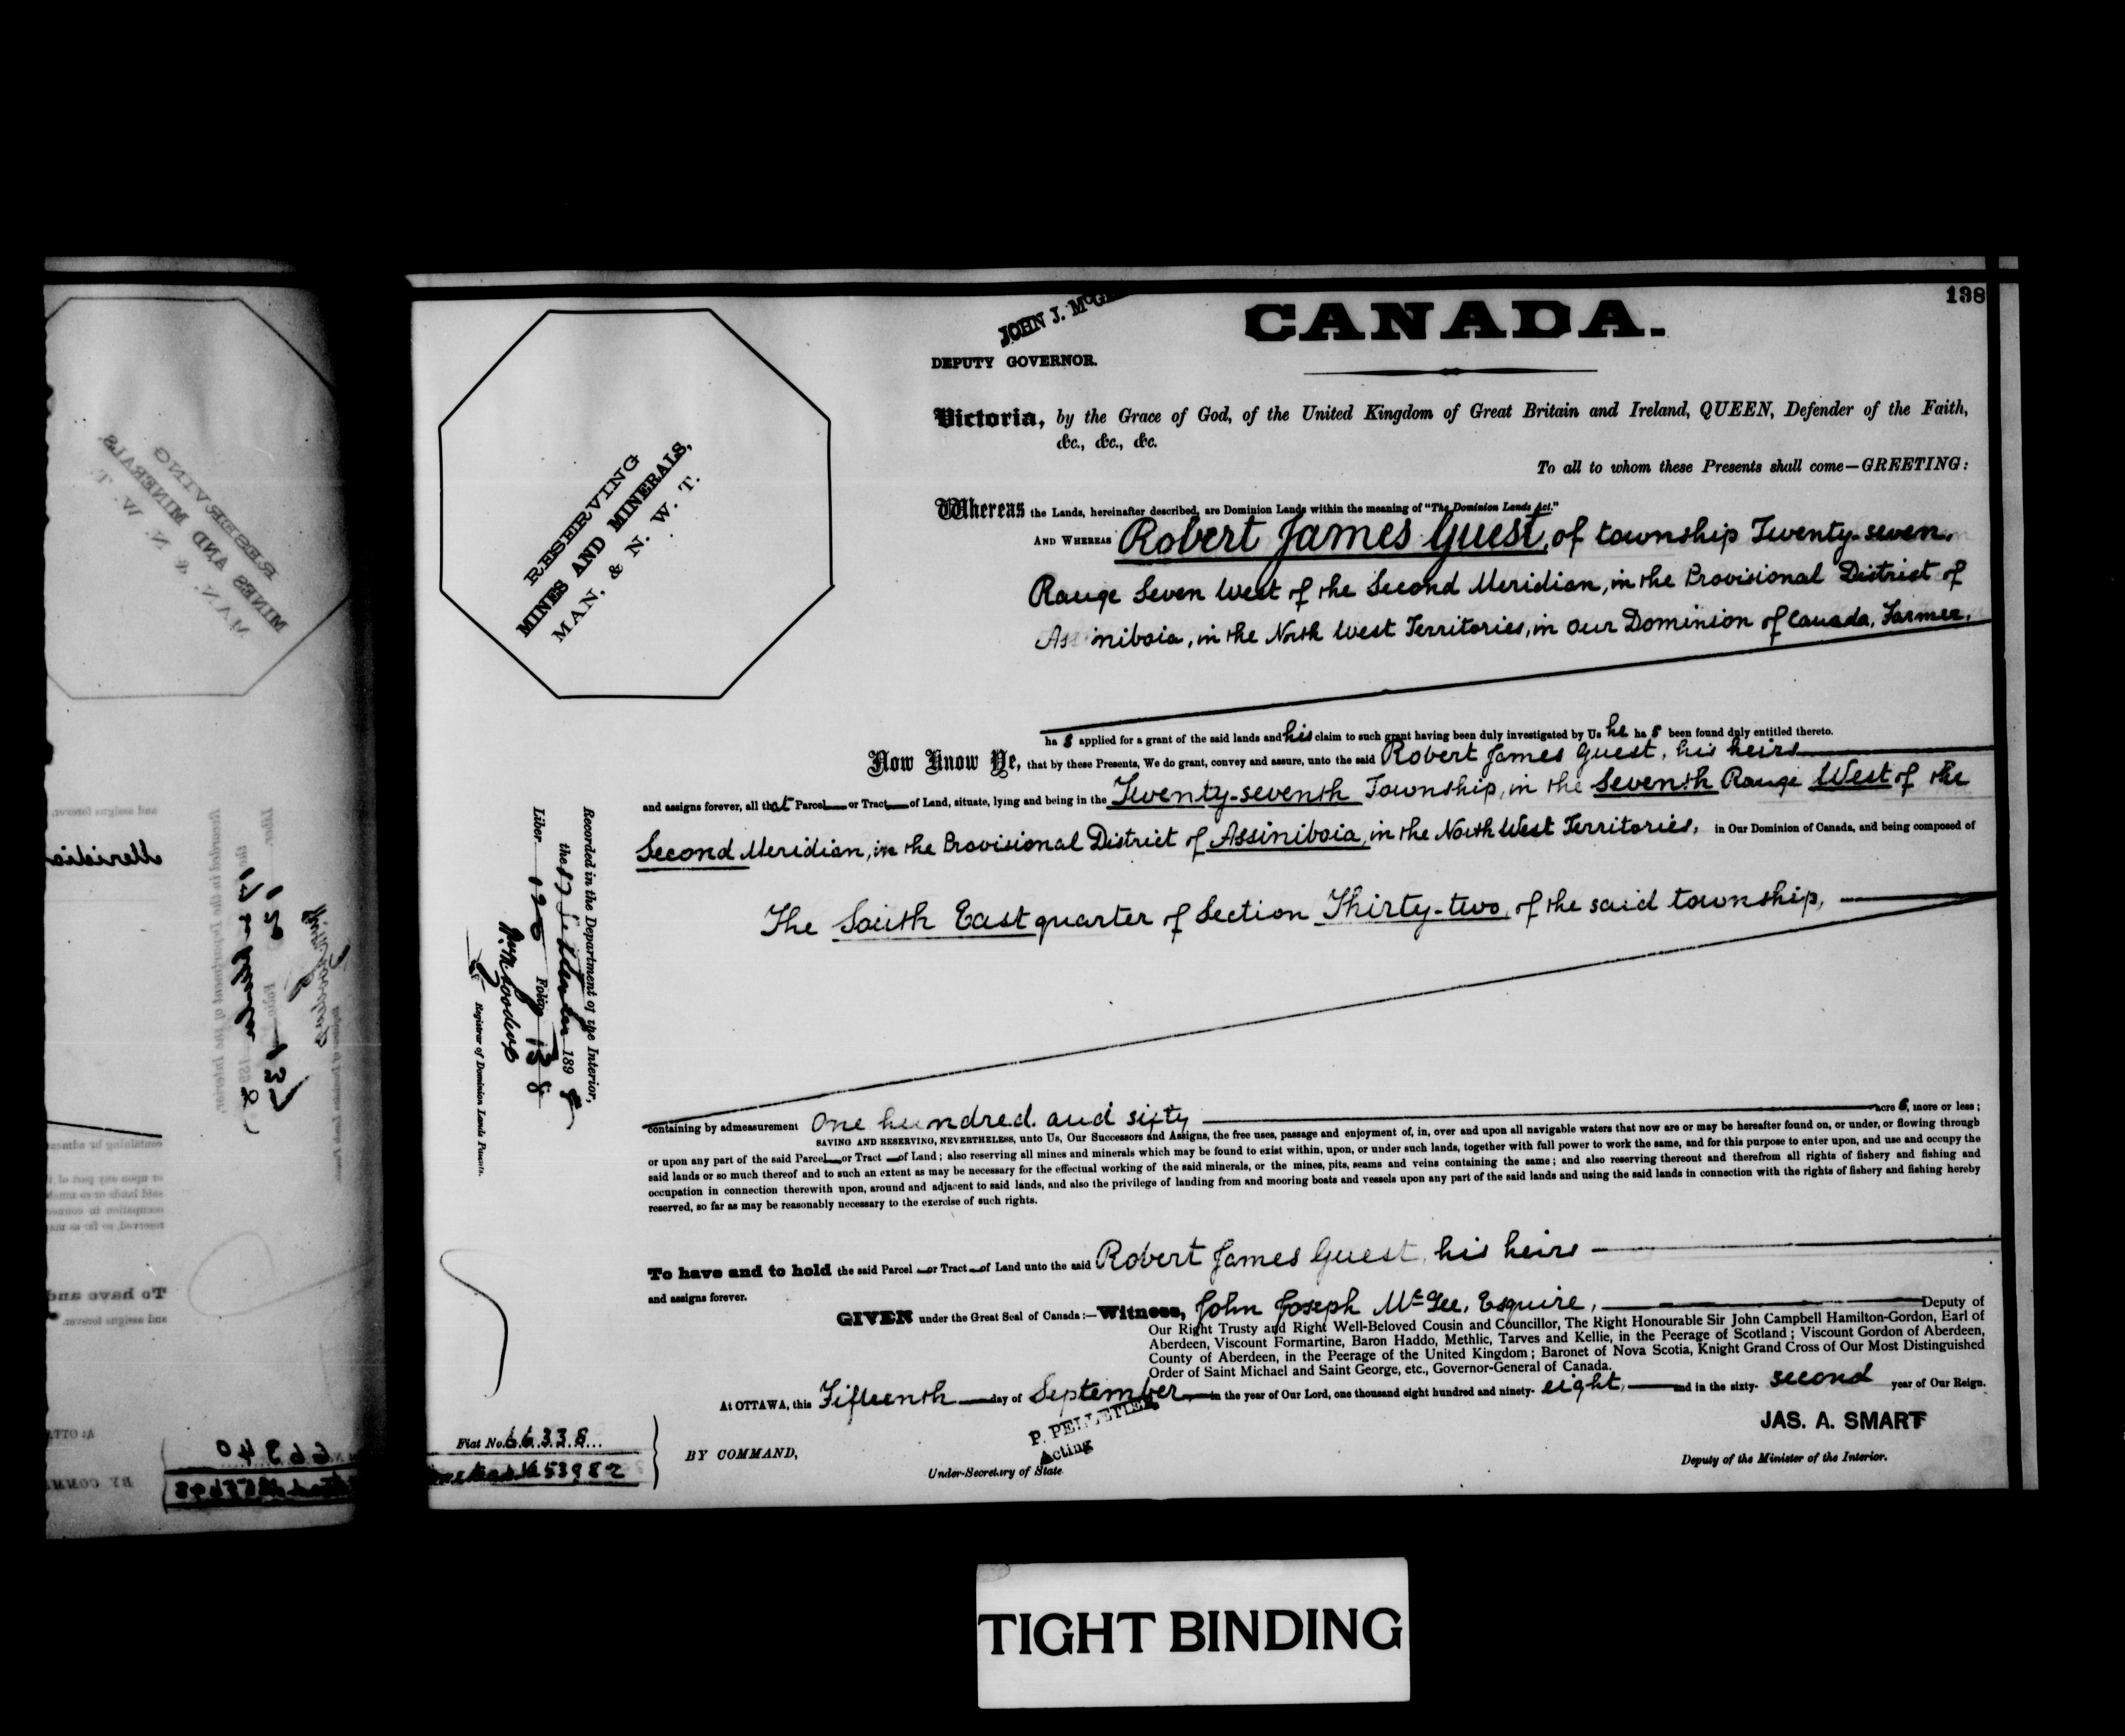 138
JOHN J. McG
CANADA.
DEPUTY GOVERNOR.
Victoria, by the Grace of God, of the United Kingdom of Great Britain and Ireland, QUEEN, Defender of the Faith,
&c., &c., &c.
To all to whom these Presents shall come—GREETING:
RESERVING
MINES AND MINERALS,
MAN, & N. W. T.
Whereas the Lands, hereinafter described, are Dominion Lands within the meaning of "The Dominion Lands Act."
AND WHEREAS Robert James Guest, of township Twenty-seven,
Range Seven West of the Second Meridian, in the Provisional District of
Assiniboia, in the North West Territories, in Our Dominion of Canada, Farmer,
has applied for a grant of the said lands and his claim to such grant having been duly investigated by Us he has been found duly entitled thereto.
Now Know Ye, that by these Presents, We do grant, convey and assure, unto the said Robert James Guest, his heirs
and assigns forever, all that Parcel or Tract of Land, situate, lying and being in the Twenty-seventh Township, in the Seventh Range West of the
Second Meridian, in the Provisional District of Assiniboia, in the North West Territories, in Our Dominion of Canada, and being composed of
The South East quarter of Section Thirty-two, of the said township,
Recorded in the Department of the Interior,
the September 1898
Liber 120 Folio 138
Registrar of Dominion Lands Patents.
containing by admeasurement One hundred and sixty acres, more or less;
SAVING AND RESERVING, NEVERTHELESS, unto Us, Our Successors and Assigns, the free uses, passage and enjoyment of, in, over and upon all navigable waters that now are or may be hereafter found on, or under, or flowing through
or upon any part of the said Parcel or Tract of Land; also reserving all mines and minerals which may be found to exist within, upon, or under such lands, together with full power to work the same, and for this purpose to enter upon, and use and occupy the
said lands or so much thereof and to such an extent as may be necessary for the effectual working of the said minerals, or the mines, pits, seams and veins containing the same; and also reserving thereout and therefrom all rights of fishery and fishing and
occupation in connection therewith upon, around and adjacent to said lands, and also the privilege of landing from and mooring boats and vessels upon any part of the said lands and using the said lands in connection with the rights of fishery and fishing hereby
reserved, so far as may be reasonably necessary to the exercise of such rights.
To have and to hold the said Parcel or Tract of Land unto the said Robert James Guest, his heirs
and assigns forever.
GIVEN under the Great Seal of Canada:—Witness, John Joseph McGee, Esquire, Deputy of
Our Right Trusty and Right Well-Beloved Cousin and Councillor, The Right Honourable Sir John Campbell Hamilton-Gordon, Earl of
Aberdeen, Viscount Formartine, Baron Haddo, Methlic, Tarves and Kellie, in the Peerage of Scotland; Viscount Gordon of Aberdeen,
County of Aberdeen, in the Peerage of the United Kingdom; Baronet of Nova Scotia, Knight Grand Cross of Our Most Distinguished
Order of Saint Michael and Saint George, etc., Governor-General of Canada.
At OTTAWA, this Fifteenth day of September in the year of Our Lord, one thousand eight hundred and ninety-eight, and in the sixty-second year of Our Reign.
P. PELLETIER,
Acting
JAS. A. SMART
Fiat No. 66338
53982
BY COMMAND,
Under-Secretary of State
Deputy of the Minister of the Interior.
TIGHT BINDING